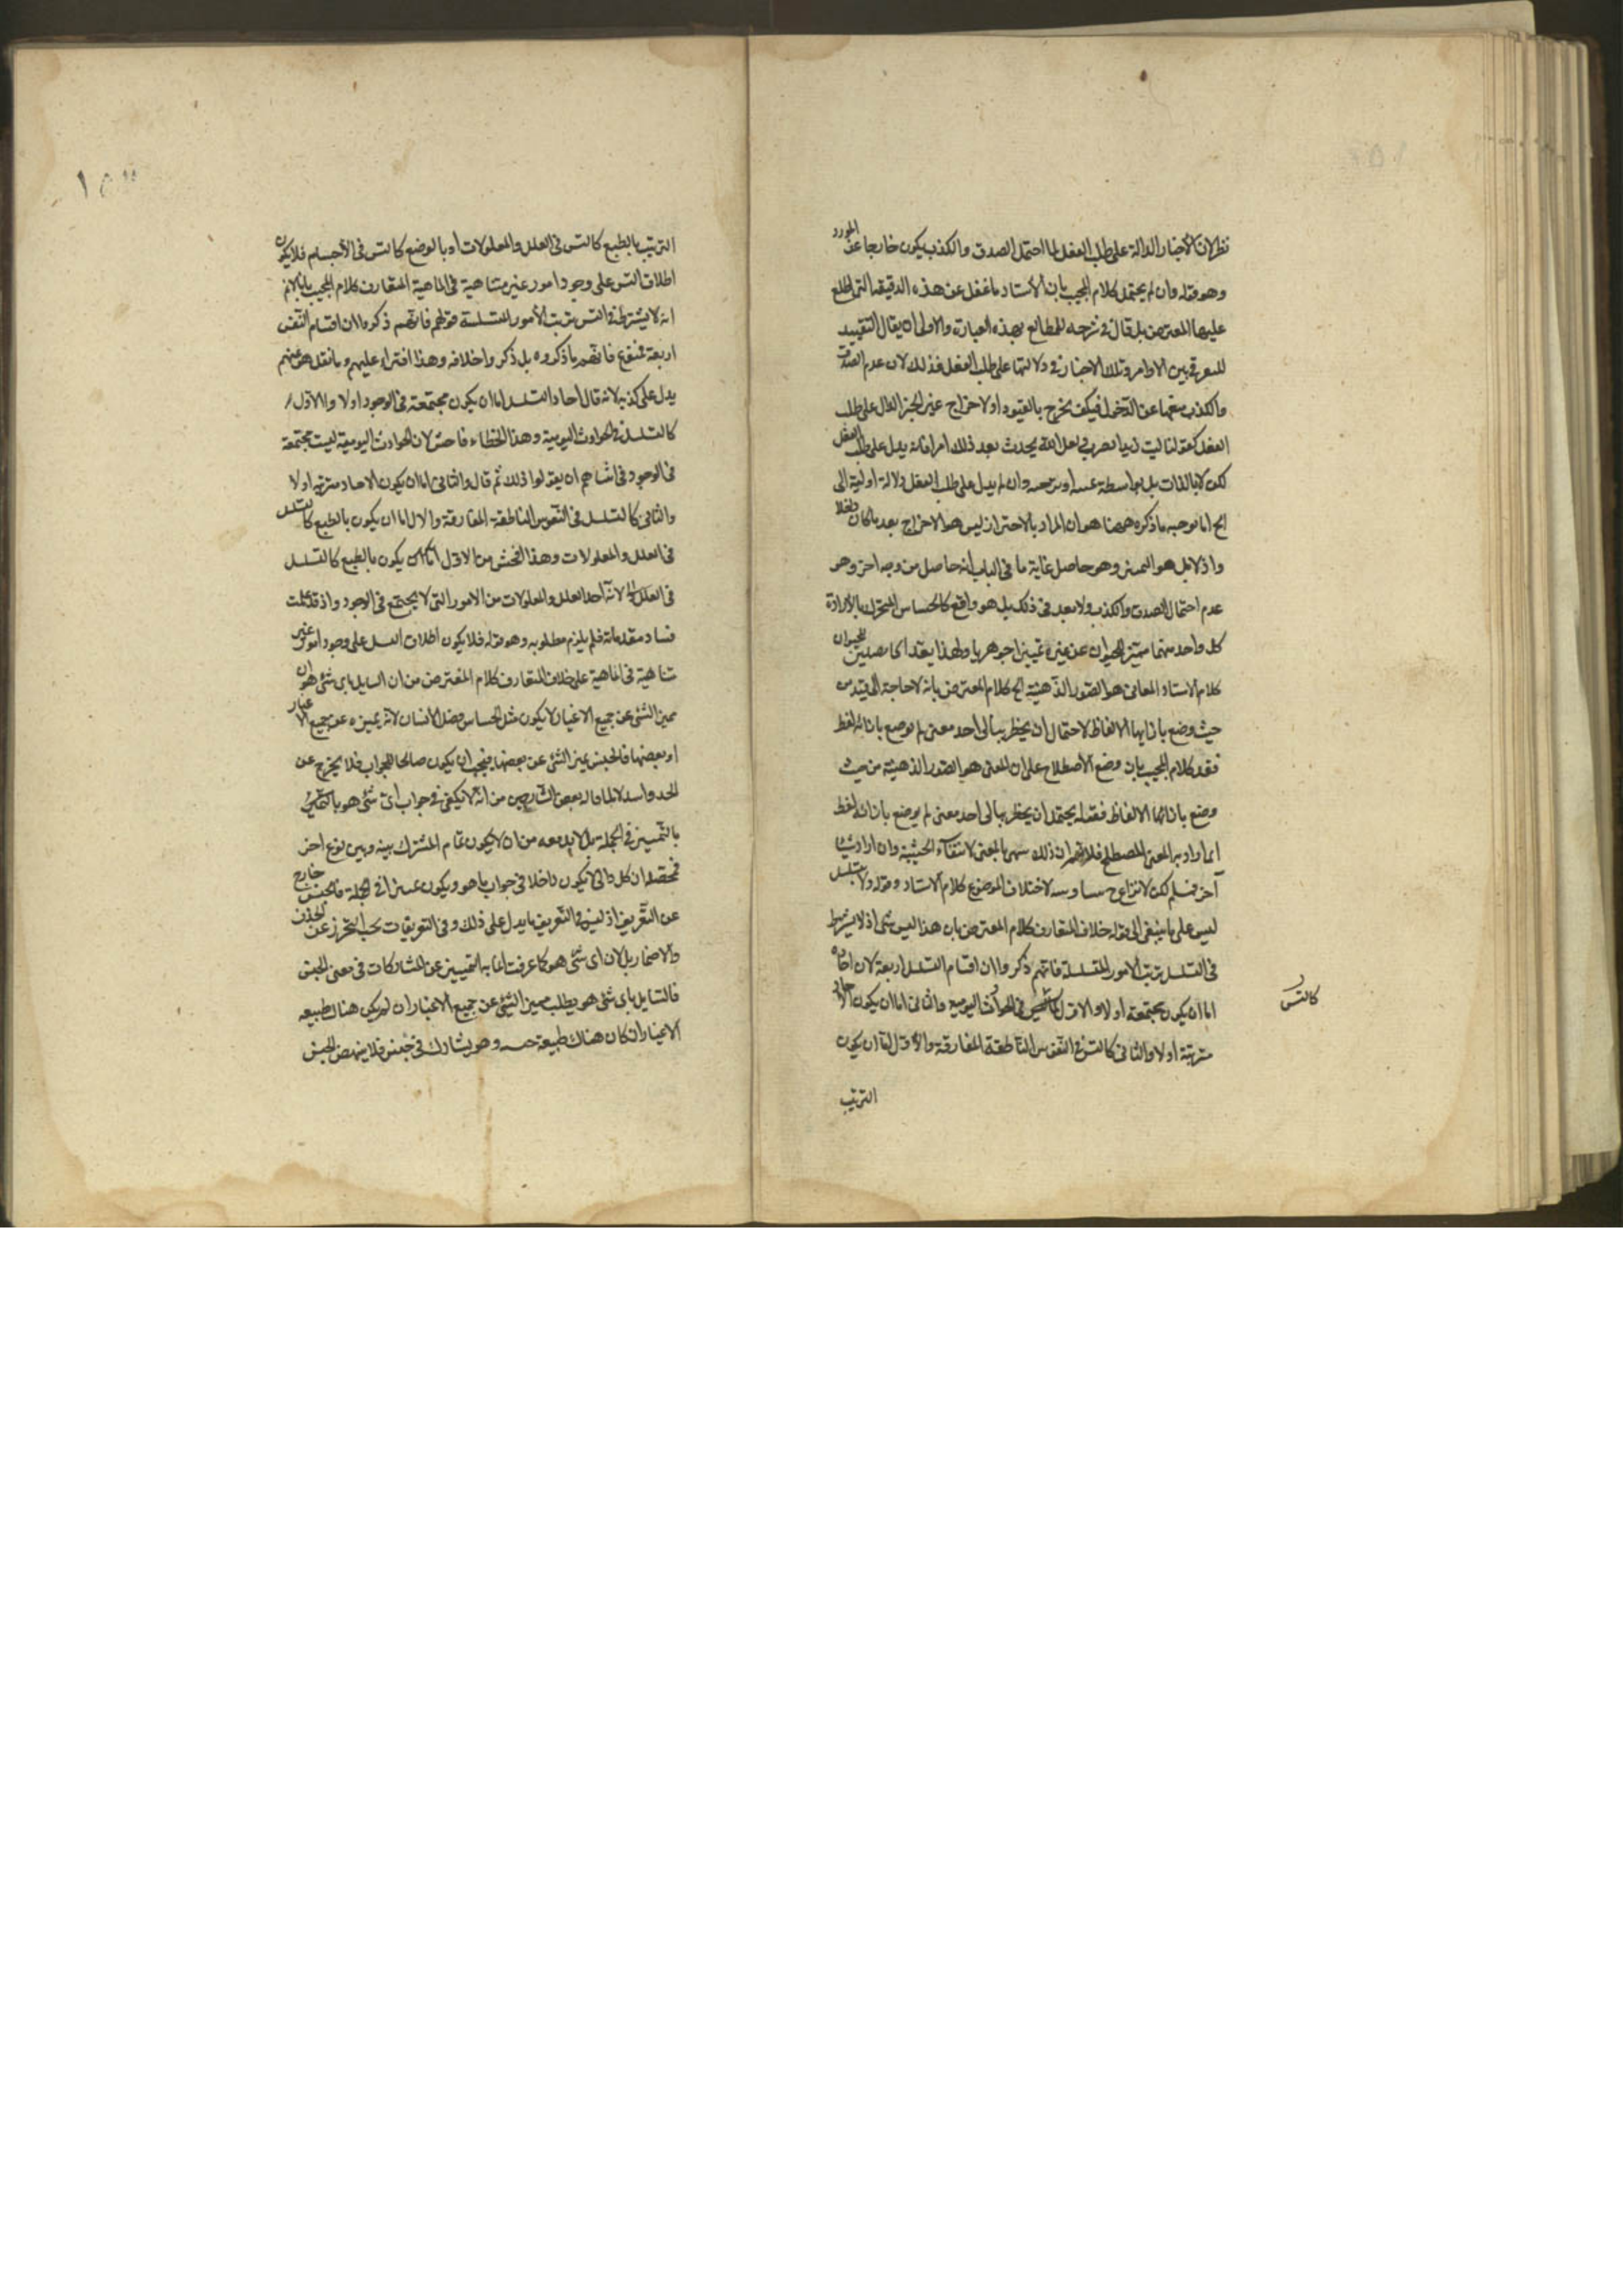 نظر لان الأخبار الدالة على طلب الفعل لما احتمل الصدق والكذب يكون خارجا عن المورد
وهو قوله وان لم يحتمل كلام المجيب بان الأستاد ما غفل عن هذه الدقيقة التي اطلع
عليها المعترض بل قال في شرحه للمطالع بهذه العبارة والاولى ان يقال التقييد
للفرق بين الاوامر وتلك الاخبار في دلالتها على طلب الفعل فذلك لان عدم الصدق
والكذب يمنعها عن الدخول فكيف يخرج بالقيود او لاخراج غير الخبر الدال على طلب
الفعل كقولنا ليت زيدا يضرب لعل الله يحدث بعد ذلك امرا فانه يدل على طلب الفعل
لكن لا بالذات بل بواسطة وان لم يدل على طلب الفعل دلالة اولية الى
اخ اما توجيه ما ذكره ههنا هو ان المراد بالاحتراز ليس هو الاخراج بعد ما كان داخلا
واذ لا بل هو التميز وهو حاصل غاية ما في الباب انه حاصل من وجه اخر وهو
عدم احتمال الصدق والكذب ولا بعد في ذلك بل هو واقع كالحساس والمتحرك بالأرادة
كل واحد منهما يميز الحيوان عن غيره تمييزا جوهريا ولهذا يعدا فصلين للحيوان
كلام الاستاد المعانى هو الصور الذهنية الخ كلام المعترض بانه لا حاجة الى قيد من
حيث وضع بازايها الالفاظ لاحتمال ان يخطر ببالى احد معنى لم يوضع بازائه لفظ
فقد كلام المجيب بان وضع الأصطلاح على ان المعنى هو الصور الذهنية من حيث
وضع بازائها الالفاظ فقوله يحتمل ان يخطر ببالى احد معنى لم يوضع بازائه لفظ
انما اراد به المعنى المصطلح فلا نم ان ذلك سمى بالمعنى لانتفاء الحيثية وان اراد شيئا
آخر فمسلم لكن لا نزاع لاختلاف الموضوع كلام الاستاد وقوله ولا تسلسل
ليس على ما ينبغى الى قوله خلاف المتعارف كلام المعترض بان هذا ليس بشى اذ لا يشترط
في التسلسل ترتب الامور المتسلسلة فانهم ذكروا ان اقسام التسلسل اربعة لان احاده
اما ان يكون مجتمعة او لا والاول في الحوادث اليومية والثانى اما ان يكون الاحاد
كالتس
مترتبة او لا والثانى كالتس في النفوس الناطقة المفارقة والأول اما ان يكون
الترتيب
١٥٣
الترتيب بالطبع كالتس في العلل والمعلولات او بالوضع كالتس في الأجسام فلا يكون
اطلاق التس على وجود امور غير متناهية في الماهية المتعارف كلام المجيب بانا لا نم
انه لا يشترط في التس ترتب الأمور المتسلسلة قولهم فانهم ذكروا ان اقسام التس
اربعة ممنوع فانهم ما ذكروه بل ذكروا خلافه وهذا افتراء عليهم وما نقل هو عنهم
يدل على كذبه لانه قال احاد التسلسل اما ان يكون مجتمعة في الوجود او لا والاول
كالتسلسل في الحوادث اليومية وهذا الخطاء فاحش لان الحوادث اليومية ليست مجتمعة
في الوجود وحاشاهم ان يقولوا ذلك ثم قال والثانى اما ان يكون الاحاد مترتبة او لا
والثانى كالتسلسل في النفوس الناطقة المفارقة والاول اما ان يكون بالطبع كالتسلسل
في العلل والمعلولات وهذا افحش من الاول يكون بالطبع كالتسلسل
في العلل الخ لانه آحاد العلل والمعلولات من الامور التى لا يجتمع في الوجود واذ قد علمت
فساد مقدماته فلم يلزم مطلوبه وهو قوله فلا يكون اطلاق التسلسل على وجود امور غير
متناهية في الماهية على خلاف المتعارف كلام المعترض من ان السايل باى شئ هو ان
مميز الشئ عن جميع الاغيار لا يكون مثل الحساس فصل الانسان لانه يميزه عن جميع الاغيار
او بعضها فالجنس يميز الشئ عن بعضها فيجب ان يكون صالحا للجواب فلا يخرج عن
الحد واستدلالهما قاله بعض الشارحين من انه لا يكفى في جواب اى شئ هو
بالتميز في الجملة بل لابد معه من ان لا يكون تمام المشترك بينه وبين نوع اخر
فحصل ان كل ذاتى لا يكون داخلا في جواب ما هو ويكون مميزا في الجملة فالجنس خارج
عن التعريف اذ ليس في التعريف ما يدل على ذلك وفي التعريفات يجب التحرز عن الحذف
والاضمار بل لان اى شئ هو كما عرفت انما به التمييز عن المشاركات في معنى الجنس
فالسايل باى شئ هو يطلب مميز الشئ عن جميع الاغيار ان لم يكن هناك طبيعه
الاغيار وان كان هناك طبيعة وهو يشارك في جنس فلا ينهض الجنس